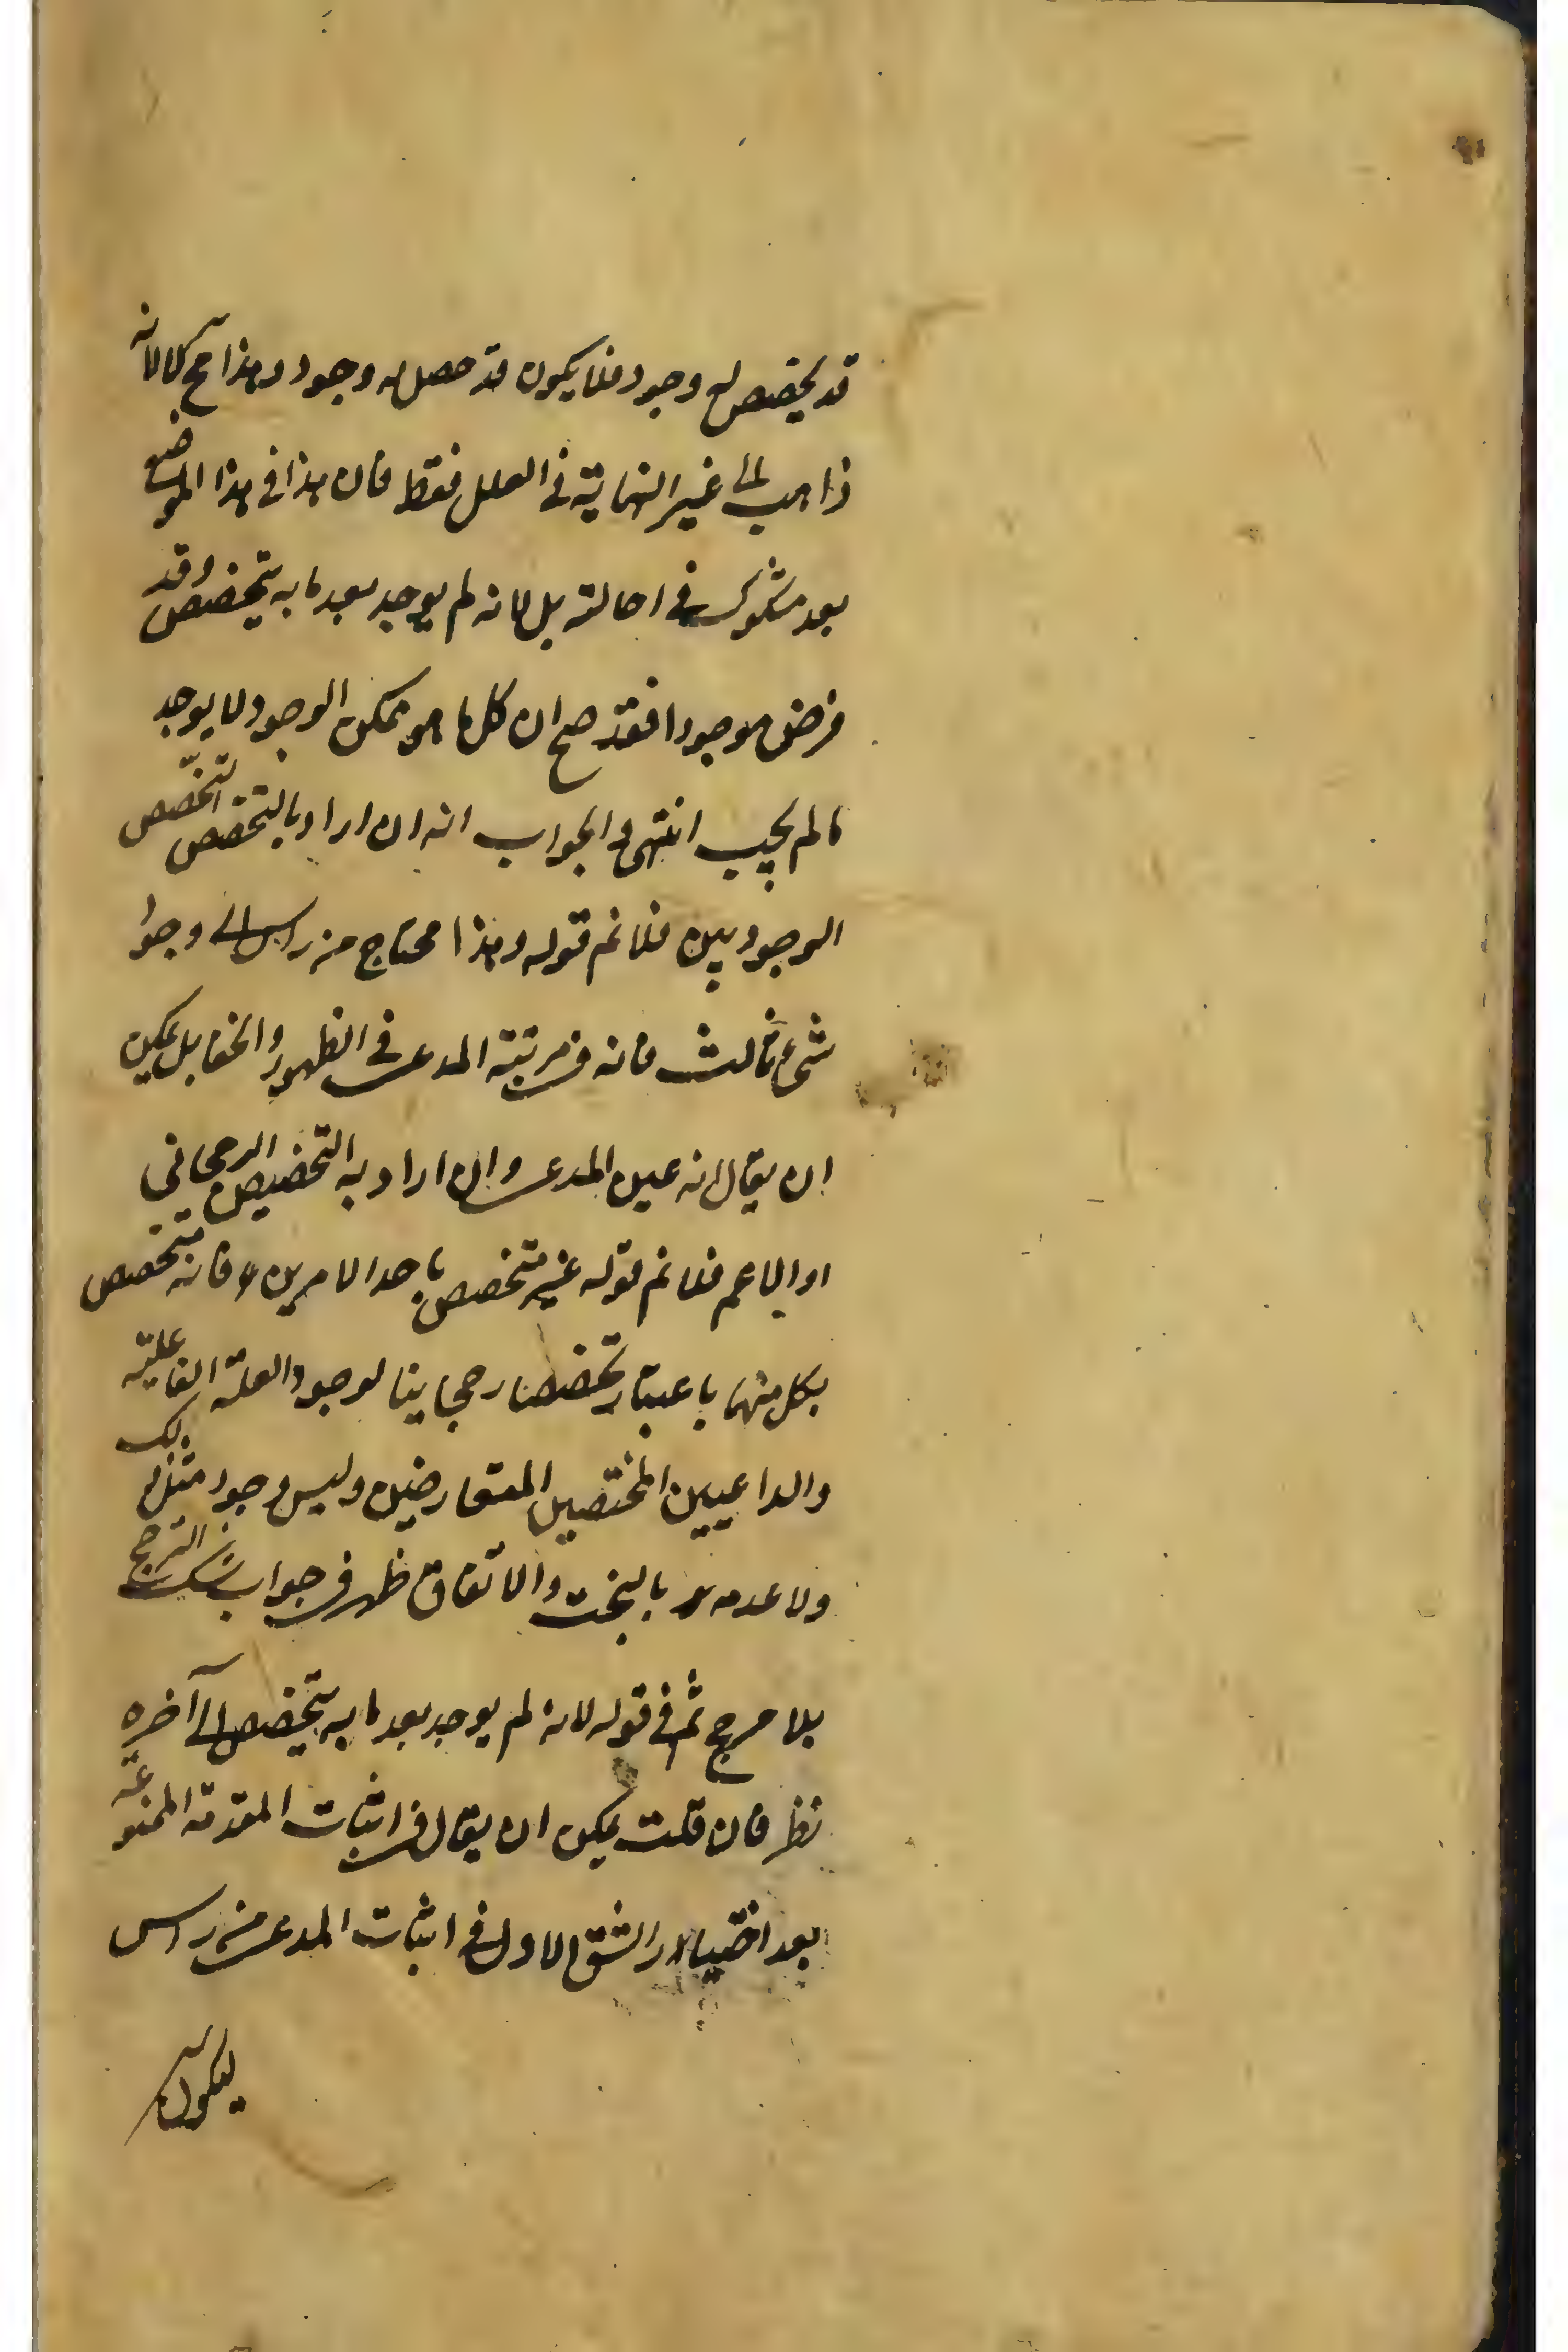 قد يخصص له وجود فلا يكون قد حصل له وجود وهذا مح لا لانه
ذاهب الى غير النهاية فى العلل فقط فان هذا فى هذا الموضع
بعد مشكوك فى احالته بل لانه لم يوجد بعد ما به يتخصص وقد
فرض موجودا فقد صح ان كل ما هو ممكن الوجود لا يوجد
ما لم يجب انتهى والجواب انه ان اراد بالتخصص التخصص
الوجودبين فلا نم قوله وهذا محتاج من راس الى وجوا
شئ ثالث فانه فى مرتبة المدعى فى الظهور والخفا بل يمكن
ان يقال انه عين المدعى وان اراد به التخصيص الرجحانى
او الاعم فلا نم قوله غير متخصص باحد الامرين فانه متخصص
بكل منهما باعتبار تخصصا رجحانيا لوجود العلة الفاعلية
والداعيين المختصين المتعارضين وليس وجود مثل ذلك
ولا عدمه بالبخت والاتفاق ظهر فى جواب شك الترجح
بلا مرجح ثم فى قوله لانه لم يوجد بعد ما به يتخصص الى آخره
نظر فان قلت يمكن ان يقال فى اثبات المقدمة الممنوعة
بعد اختيار الشق الاول فى اثبات المدعى من راس
ليكون